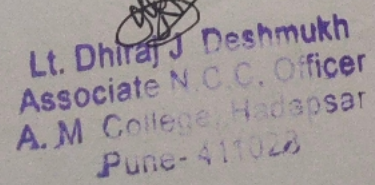 Lt. Dhiraj J Deshmukh
Associate N.C.C. Officer
A. M College, Hadapsar
Pune- 411028